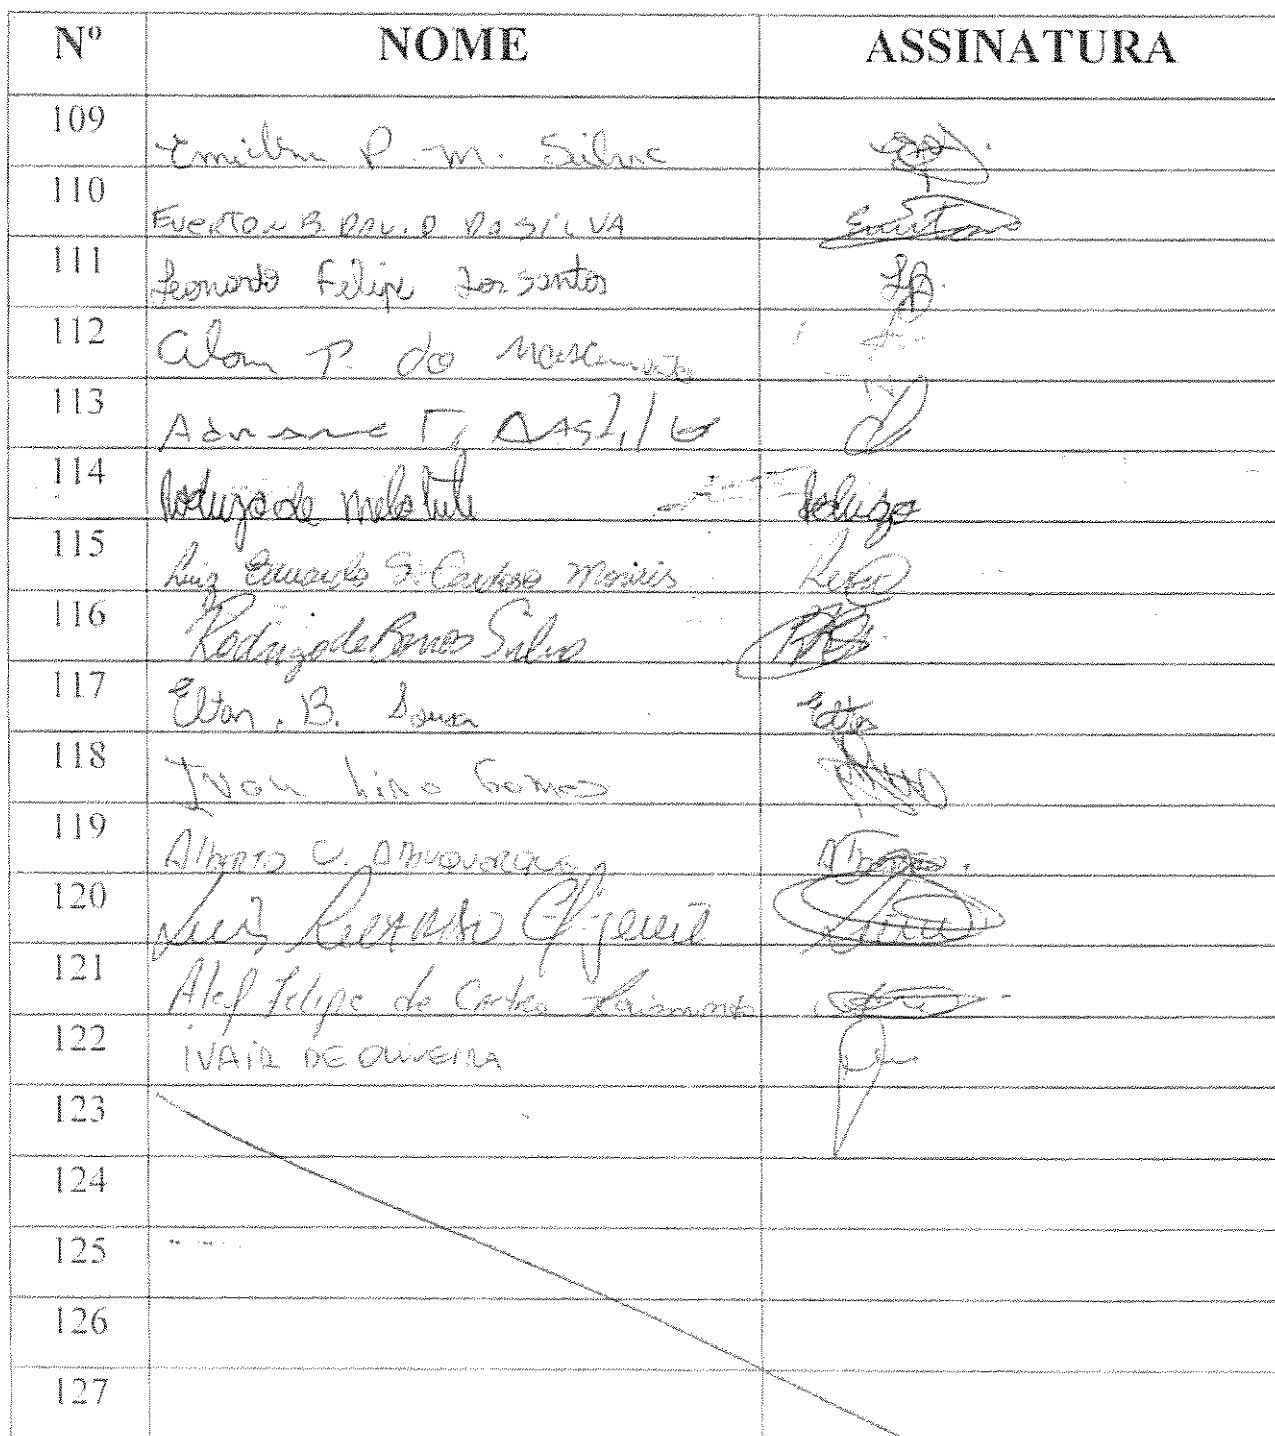 Nº NOME ASSINATURA
109 P. M. Silva
110 EVERTON B. DAVID DA SILVA Everton
111 Leonardo Felipe dos Santos
112 Alan P. do Nascimento
113
114 Rodrigo de Melo Rodrigo
115 Luiz Eduardo S. Cardoso Luiz
116 Rodrigo de Barros Silva
117 Elton. B. Sousa Elton
118 Ivan Lino Gomes
119 Alberto C. Albuquerque Alberto.
120 Luís Ricardo
121 Alef Felipe de Castro
122 IVAIR DE OLIVEIRA
123
124
125
126
127